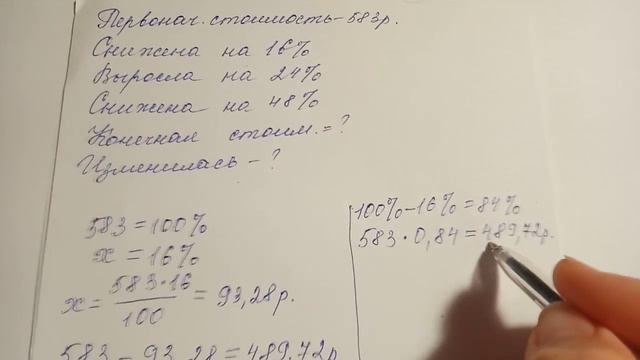 Первонач. стоимость - 583р.
Снижена на 16%
Выросла на 24%
Снижена на 48%
Конечная стоим. = ?
Изменилась - ?
583 = 100%
x = 16%
x = 583·16 / 100 = 93,28р.
583 - 93,28 = 489,72р
100% - 16% = 84%
583 · 0,84 = 489,72р.